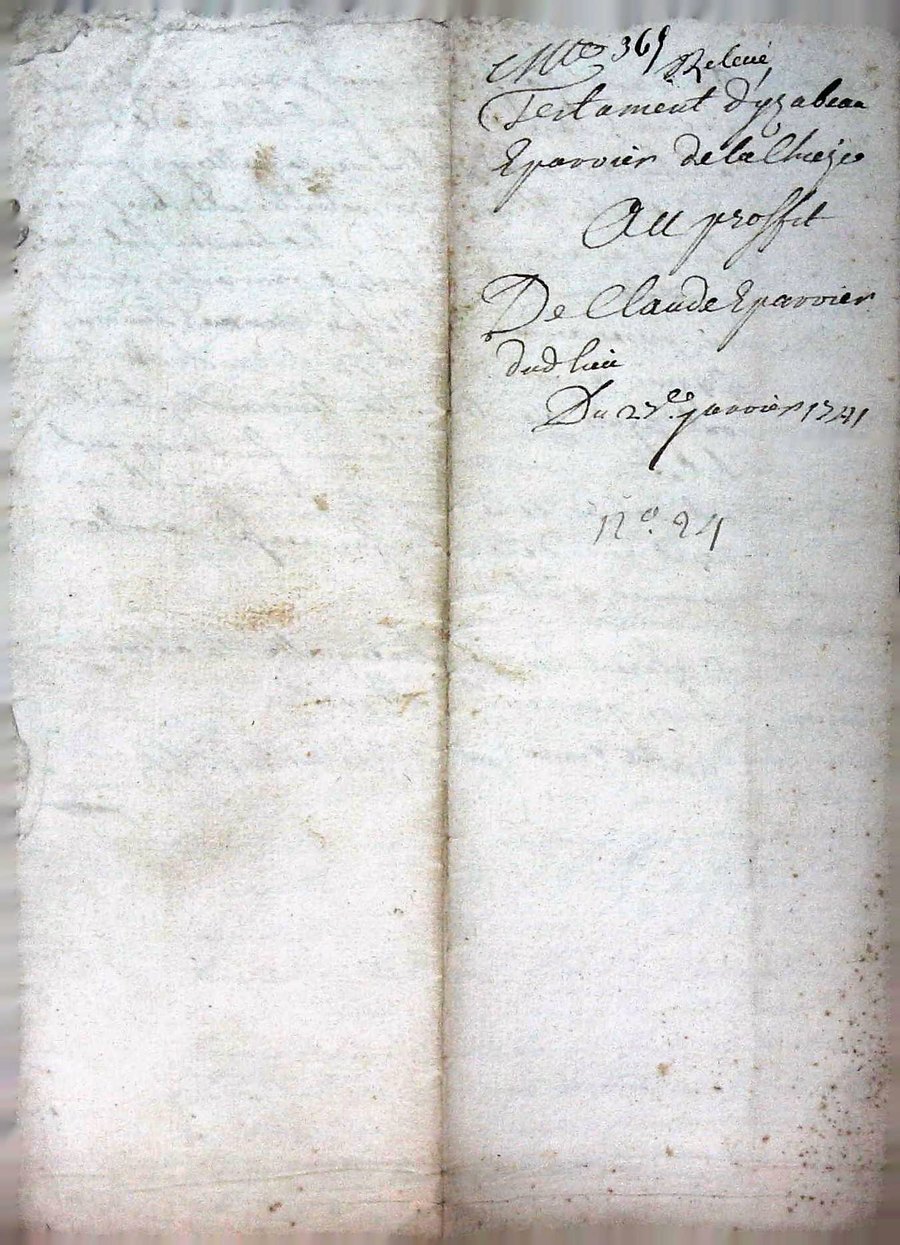 369 Relevé
Testament d'yzabeau
Eparvier de la Chieze
Au proffit
De Claude Eparvier
dud lieu
Du janvier 1741
n° 24